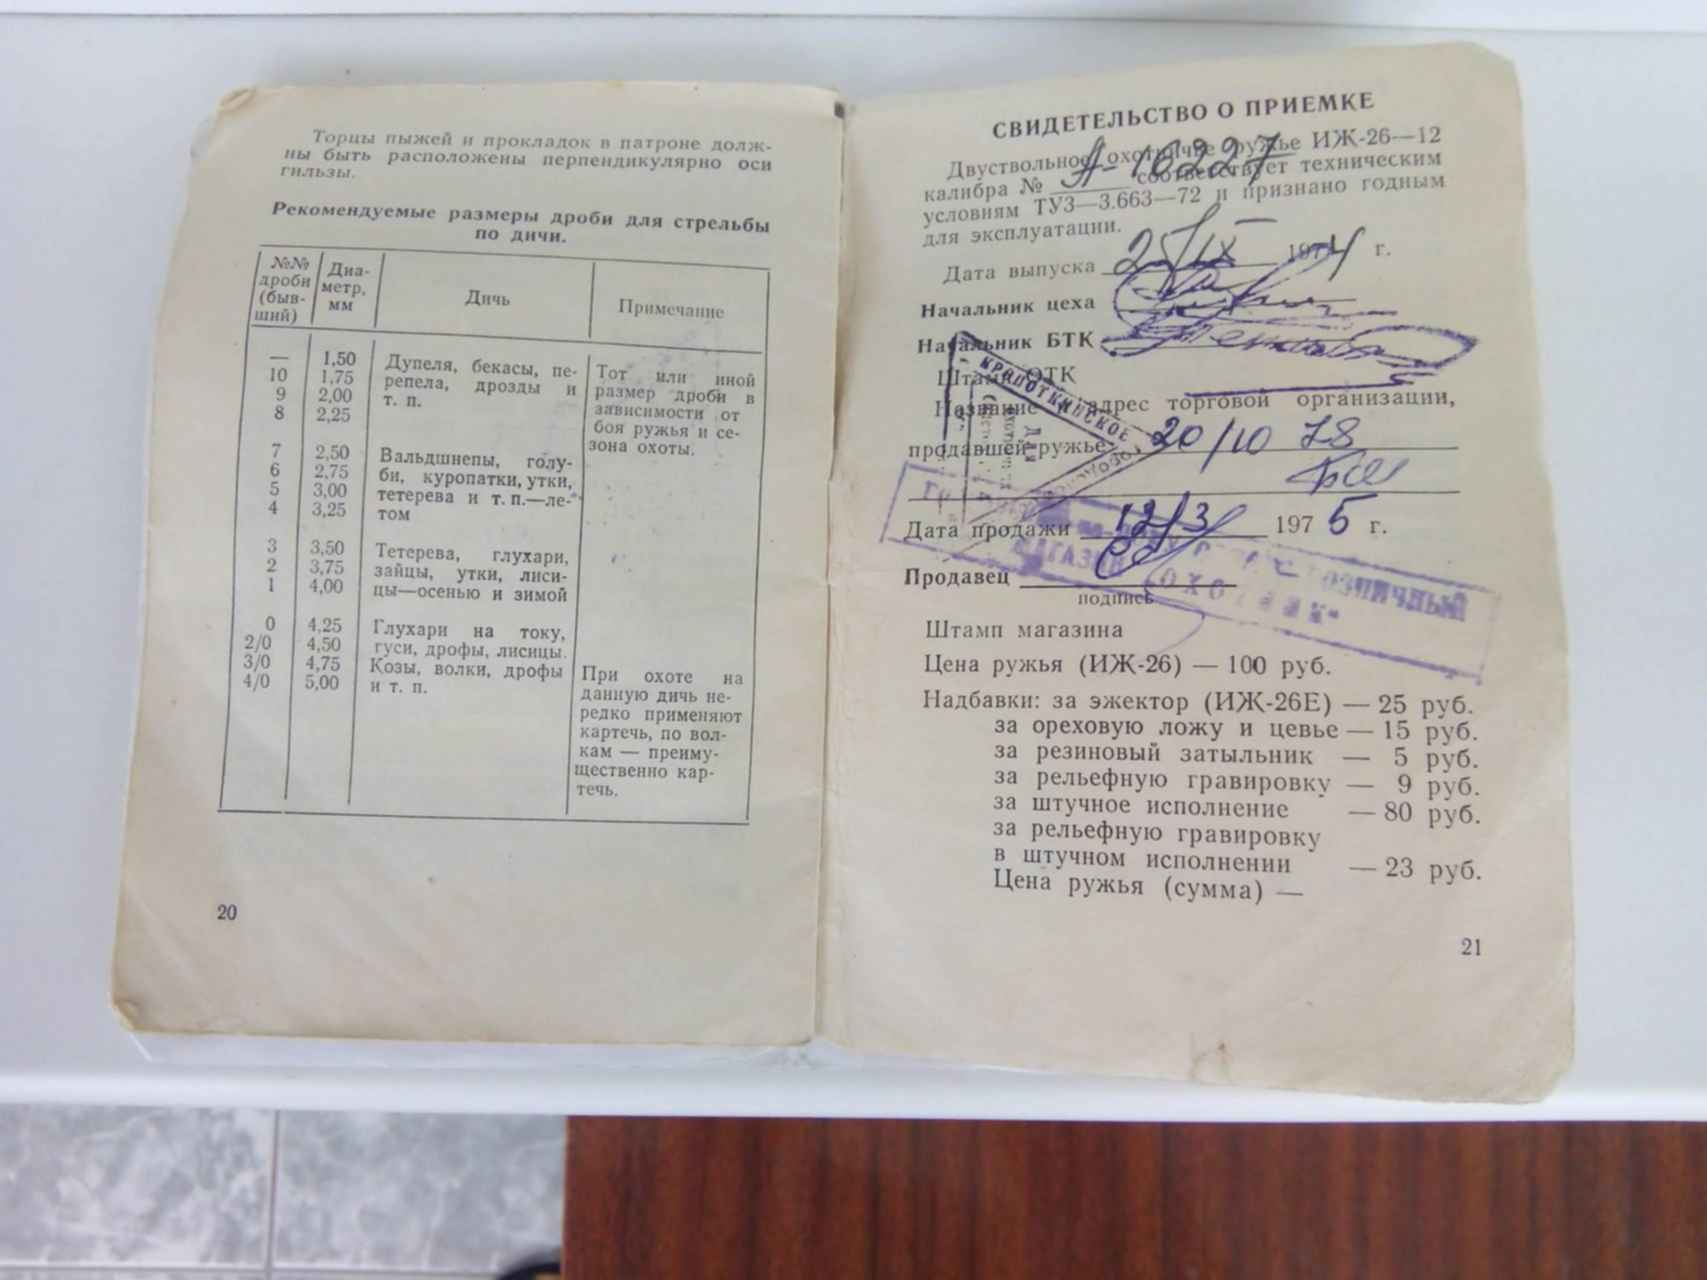 Торцы пыжей и прокладок в патроне долж-
ны быть расположены перпендикулярно оси
гильзы.
Рекомендуемые размеры дроби для стрельбы
по дичи.
№№ дроби (быв-ший) Диа-метр, мм Дичь Примечание
— 1,50 Дупеля, бекасы, пе- Тот или иной
10 1,75 репела, дрозды и размер дроби в
9 2,00 т. п. зависимости от
8 2,25 боя ружья и се-
7 2,50 Вальдшнепы, голу- зона охоты.
6 2,75 би, куропатки, утки,
5 3,00 тетерева и т. п.—ле-
4 3,25 том
3 3,50 Тетерева, глухари,
2 3,75 зайцы, утки, лиси-
1 4,00 цы—осенью и зимой
0 4,25 Глухари на току,
2/0 4,50 гуси, дрофы, лисицы.
3/0 4,75 Козы, волки, дрофы При охоте на
4/0 5,00 и т. п. данную дичь не-
редко применяют
картечь, по вол-
кам — преиму-
щественно кар-
течь.
20
СВИДЕТЕЛЬСТВО О ПРИЕМКЕ
Двуствольное охотничье ружье ИЖ-26—12
калибра № А-16227 соответствует техническим
условиям ТУ3—3.663—72 и признано годным
для эксплуатации.
Дата выпуска 25/IX 1974 г.
Начальник цеха
Начальник БТК
Штамп ОТК
КРОПОТКИНСКОЕ
Название и адрес торговой организации,
продавшей ружье 20/10 78
Дата продажи 12/3 1975 г.
МАГАЗИН ОХОТНИК
Продавец
подпись
Штамп магазина
Цена ружья (ИЖ-26) — 100 руб.
Надбавки: за эжектор (ИЖ-26Е) — 25 руб.
за ореховую ложу и цевье — 15 руб.
за резиновый затыльник — 5 руб.
за рельефную гравировку — 9 руб.
за штучное исполнение — 80 руб.
за рельефную гравировку
в штучном исполнении — 23 руб.
Цена ружья (сумма) —
21